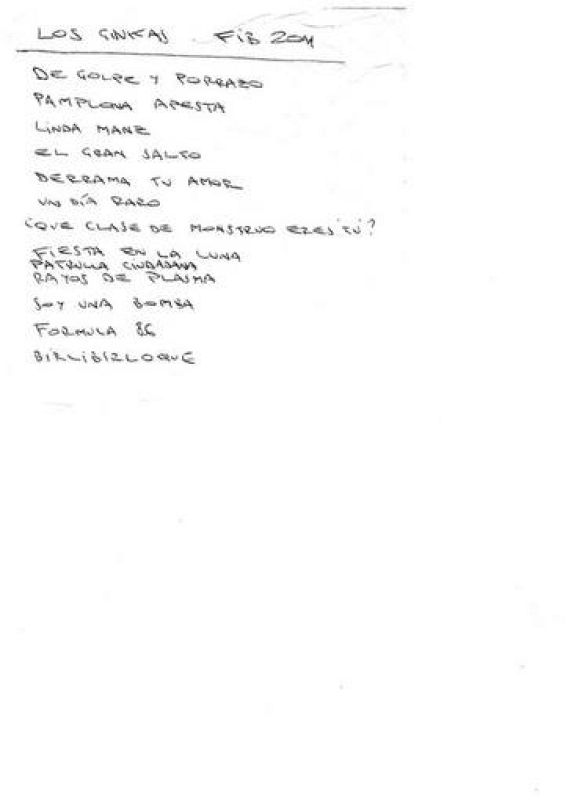 LOS GINKAS FIB 2011
DE GOLPE Y PORRAZO
PAMPLONA APESTA
LINDA MANZ
EL GRAN SALTO
DERRAMA TU AMOR
UN DÍA RARO
¿QUE CLASE DE MONSTRUO ERES TÚ?
FIESTA EN LA LUNA
PATRULLA CIUDADANA
RAYOS DE PLASMA
SOY UNA BOMBA
FORMULA 86
BIRLIBIRLOQUE